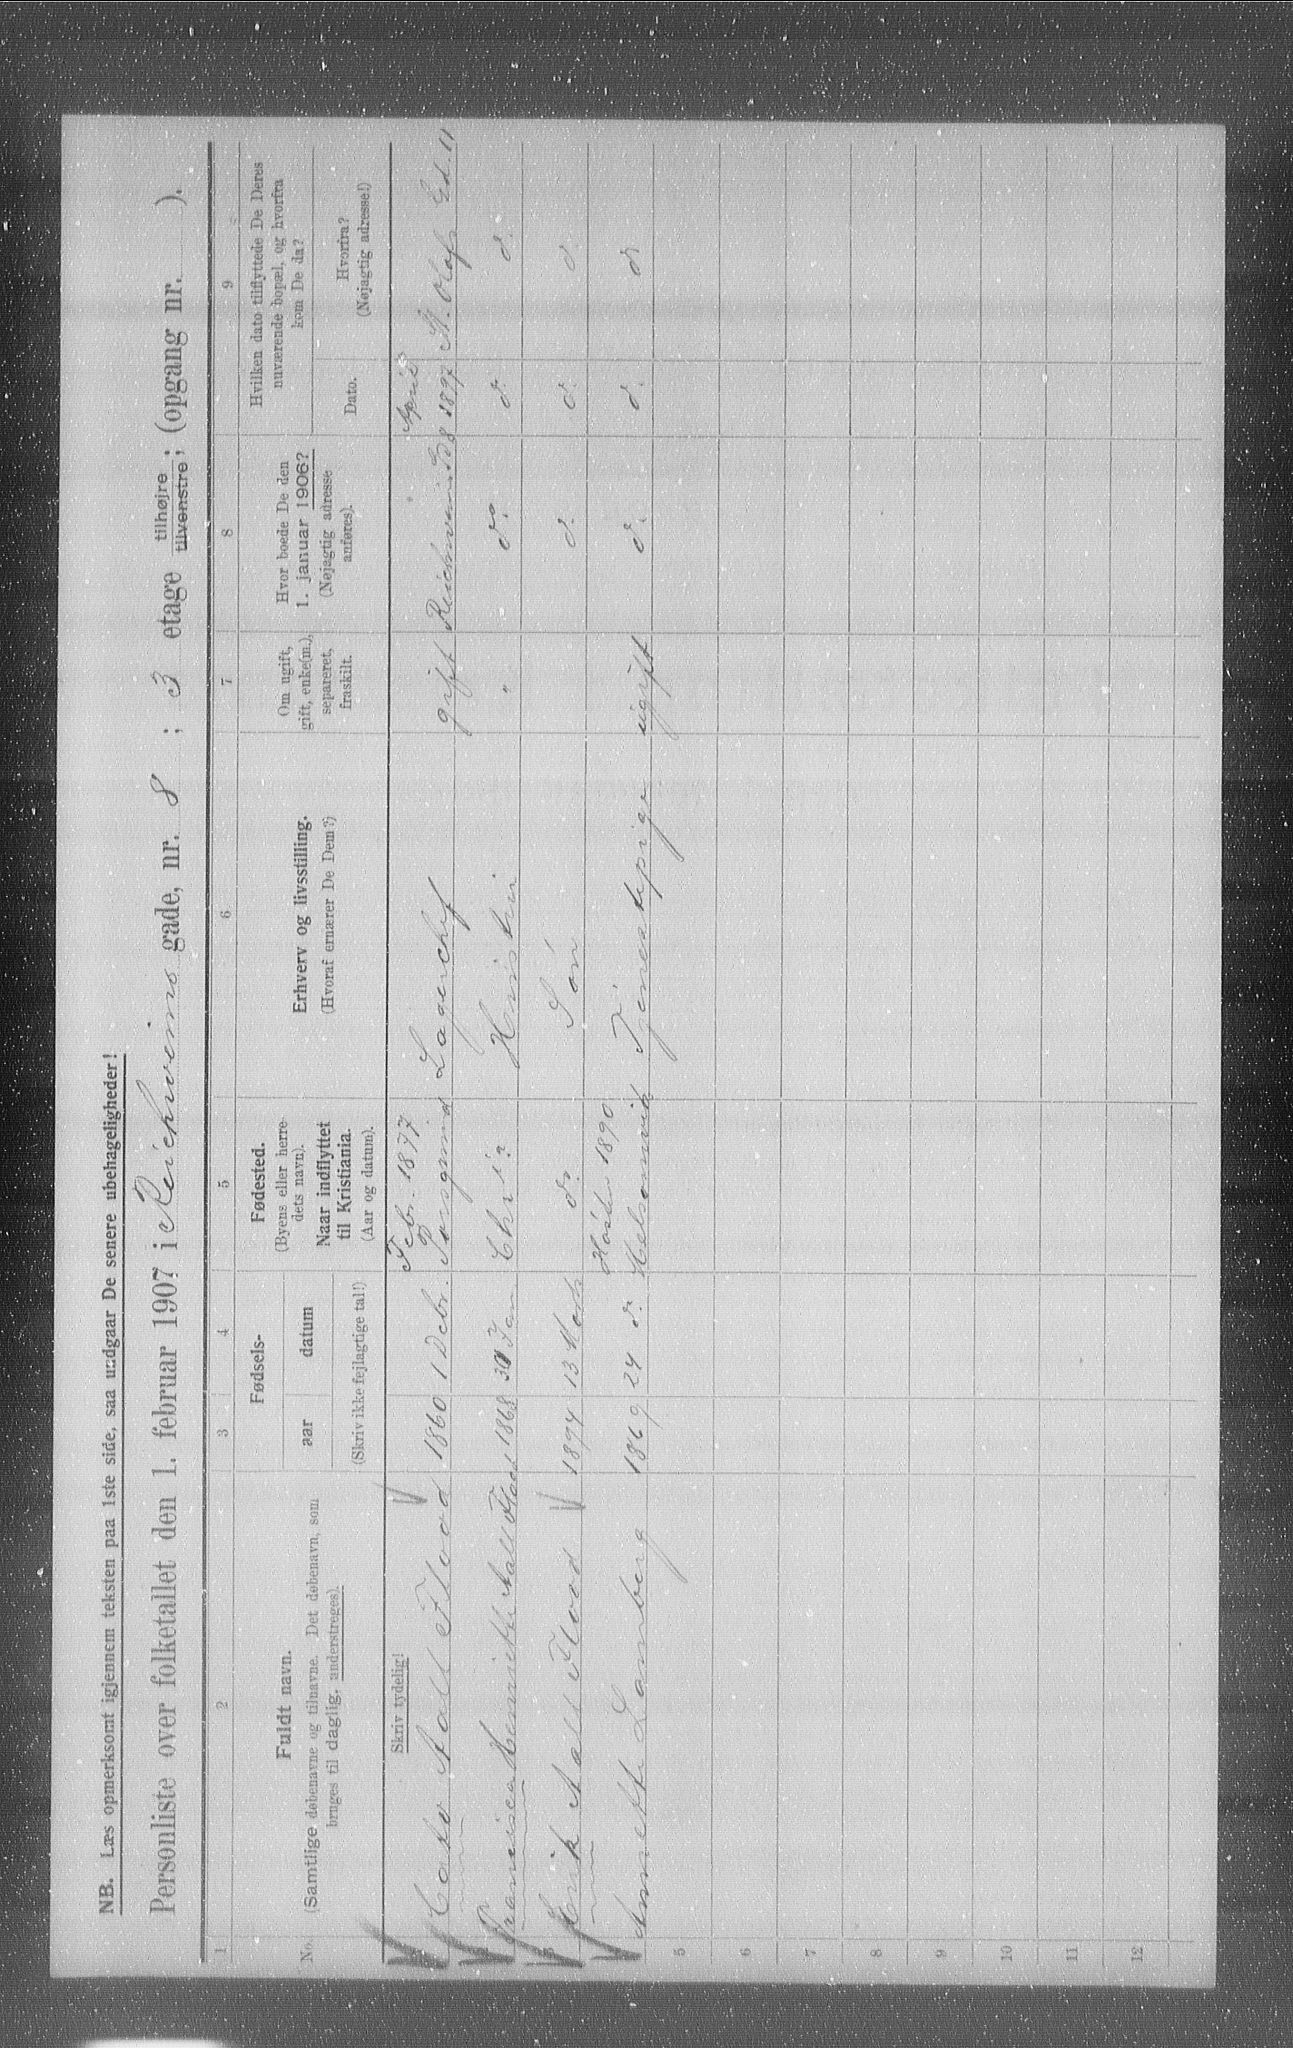 NB. Læs opmerksomt igjennem teksten paa 1ste side, saa undgaar De senere ubehageligheder!
Personliste over folketallet den 1. februar 1907 i Reichweins gade, nr. 8 ; 3 etage tilhøjre ; (opgang nr. ).
tilvenstre
1 2 3 4 5 6 7 8 9
No.
Fuldt navn.
(Samtlige døbenavne og tilnavne. Det døbenavn, som
bruges til daglig, understreges).
Fødsels-
aar datum
(Skriv ikke fejlagtige tal!)
Fødested.
(Byens eller herre-
dets navn).
Naar indflyttet
til Kristiania.
(Aar og datum).
Erhverv og livsstilling.
(Hvoraf ernærer De Dem?)
Om ugift,
gift, enke(m.),
separeret,
fraskilt.
Hvor boede De den
1. januar 1906?
(Nøjagtig adresse
anføres).
Hvilken dato tilflyttede De Deres
nuværende bopæl, og hvorfra
kom De da?
Dato.
Hvorfra?
(Nøjagtig adresse!)
Skriv tydelig!
Febr. 1877 April
Cato Aall Flood 1860 1 Debr. Porsgrund Lagerchef gift Reichweinsgd 8 1897 St. Olafs Gd. 11
Francisca Henriette Aall Flood 1868 30 Jan Chr.ia Hustru " do. d. d.
Erik Aall Flood 1894 13 Marts do Søn d. d. d.
Høsten 1890
Annette Lamberg 1869 24 d. Melsomvik Tjenestepige ugift d. d. d.
5
6
7
8
9
10
11
12